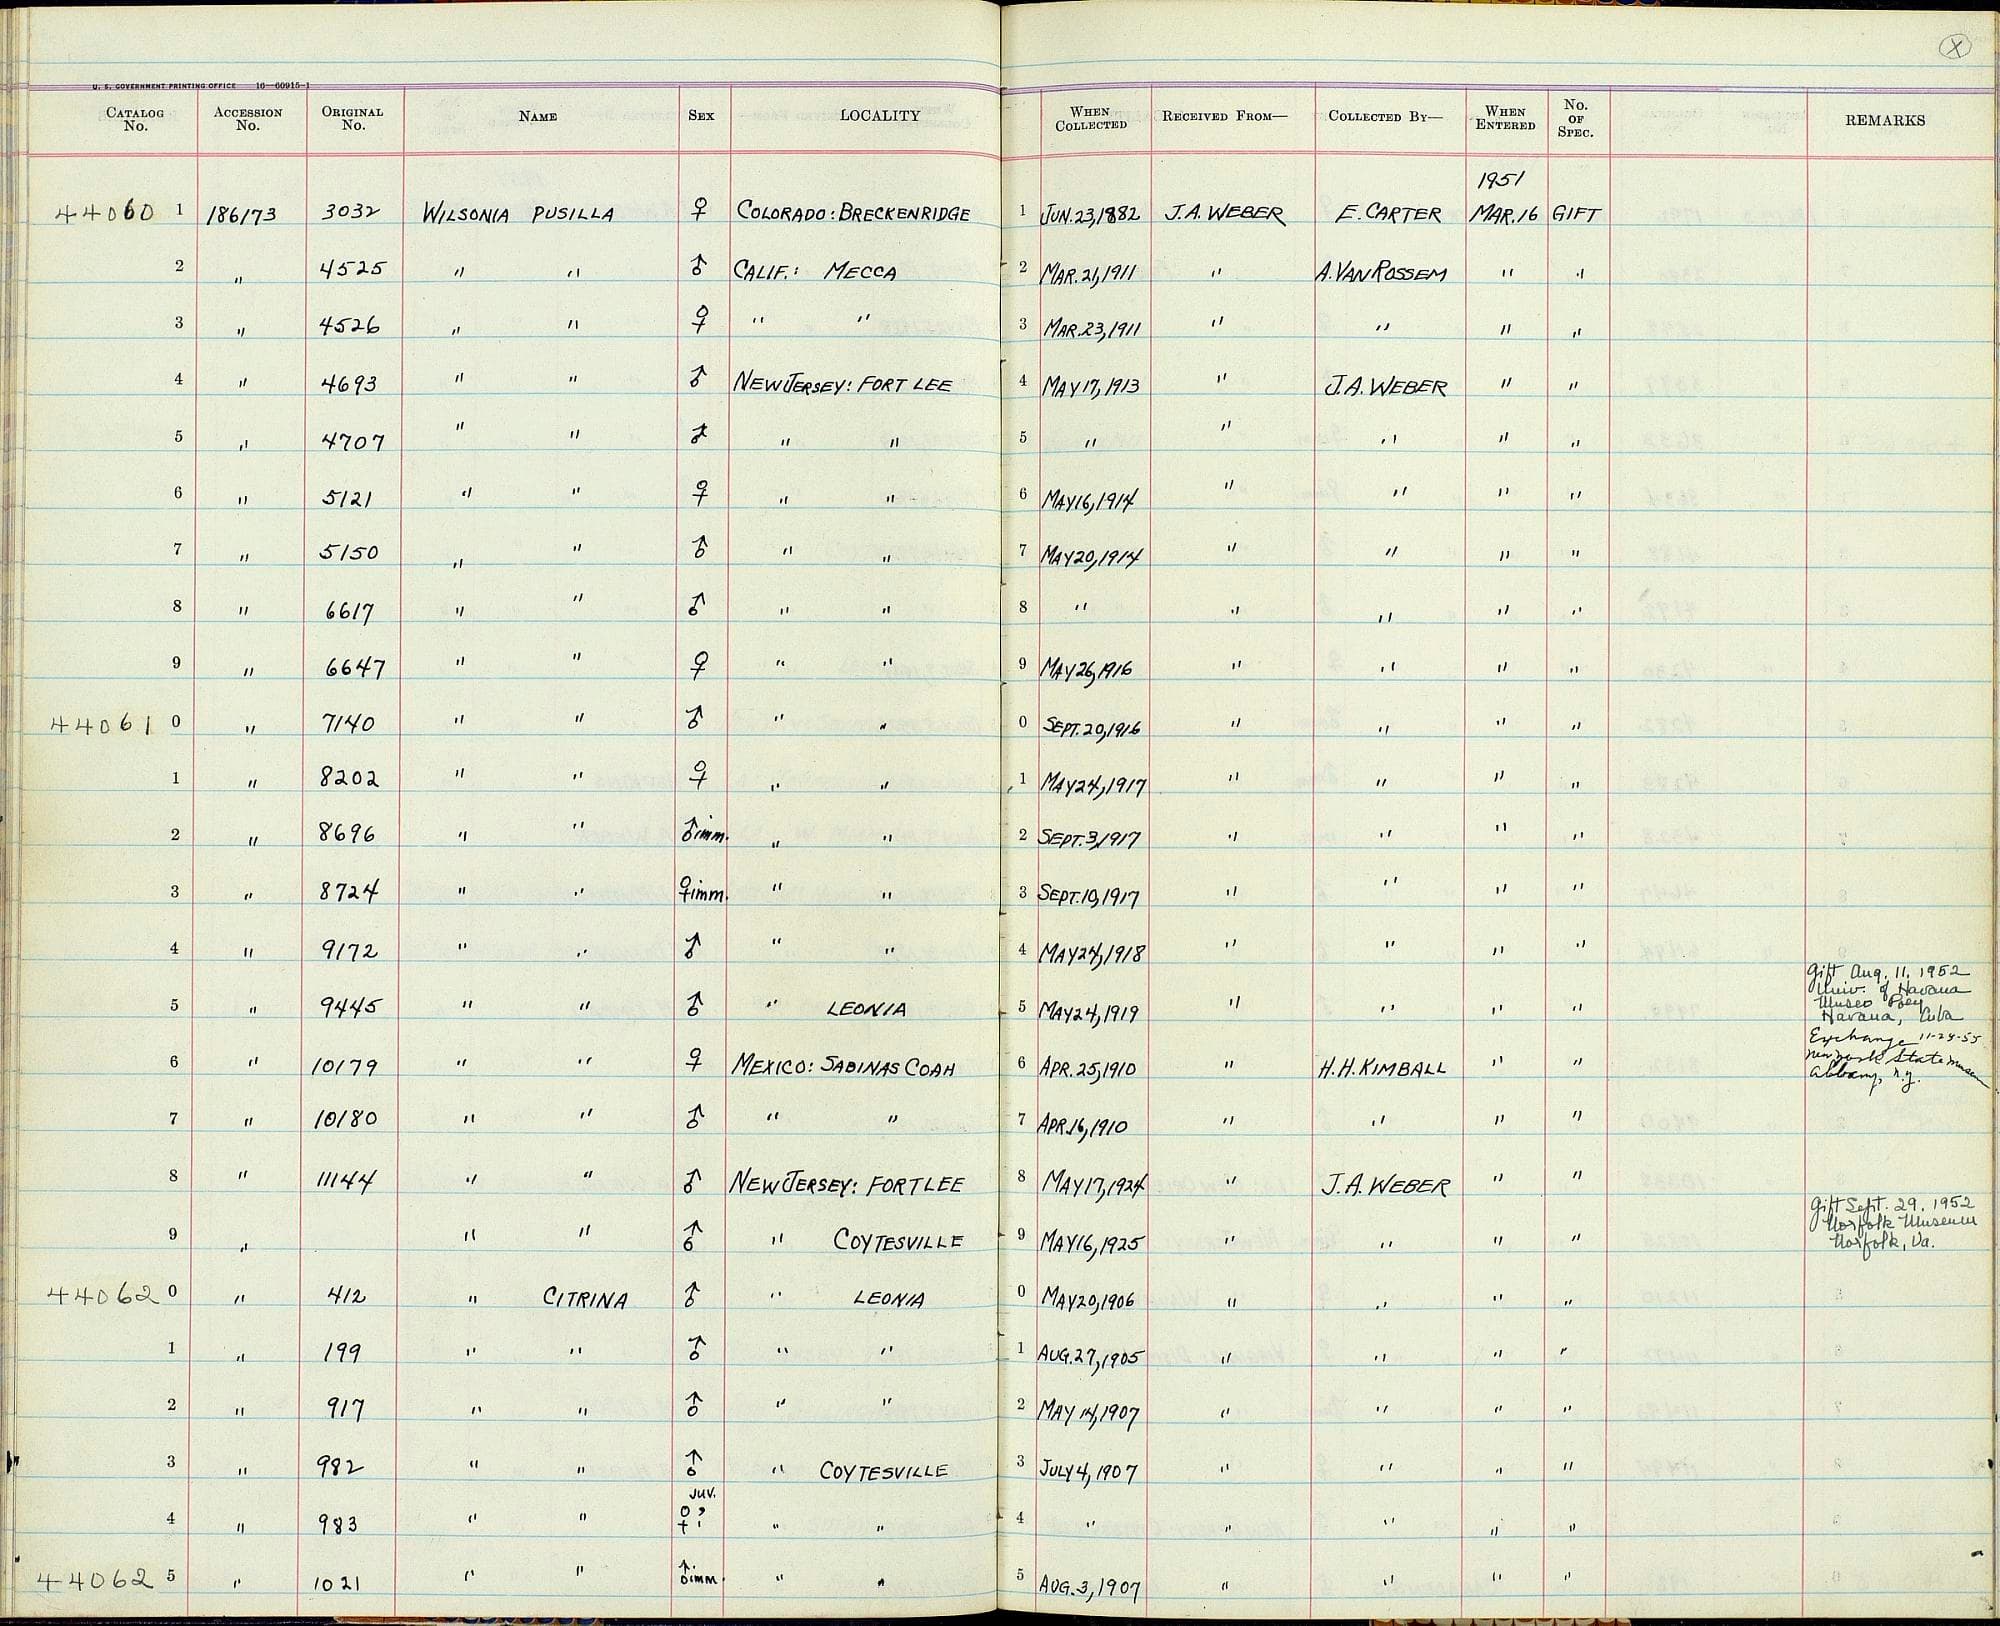 X
U. S. GOVERNMENT PRINTING OFFICE 16—60915-1
CATALOG No. ACCESSION No. ORIGINAL No. NAME SEX LOCALITY WHEN COLLECTED RECEIVED FROM— COLLECTED BY— WHEN ENTERED No. OF SPEC. REMARKS
1951
44060 1 186173 3032 WILSONIA PUSILLA ♀ COLORADO: BRECKENRIDGE 1 JUN. 23, 1882 J. A. WEBER E. CARTER MAR. 16 GIFT
2 " 4525 " " ♂ CALIF.: MECCA 2 MAR. 21, 1911 " A. VAN ROSSEM " "
3 " 4526 " " ♀ " " 3 MAR. 23, 1911 " " " "
4 " 4693 " " ♂ NEW JERSEY: FORT LEE 4 MAY 17, 1913 " J. A. WEBER " "
5 " 4707 " " ♂ " " 5 " " " " "
6 " 5121 " " ♀ " " 6 MAY 16, 1914 " " " "
7 " 5150 " " ♂ " " 7 MAY 20, 1914 " " " "
8 " 6617 " " ♂ " " 8 " " " " "
9 " 6647 " " ♀ " " 9 MAY 26, 1916 " " " "
44061 0 " 7140 " " ♂ " " 0 SEPT. 20, 1916 " " " "
1 " 8202 " " ♀ " " 1 MAY 24, 1917 " " " "
2 " 8696 " " ♂ imm. " " 2 SEPT. 3, 1917 " " " "
3 " 8724 " " ♀ imm. " " 3 SEPT. 10, 1917 " " " "
4 " 9172 " " ♂ " " 4 MAY 24, 1918 " " " "
5 " 9445 " " ♂ " LEONIA 5 MAY 24, 1919 " " " " Gift Aug. 11, 1952
Univ. of Havana
Museo Poey
Havana, Cuba
6 " 10179 " " ♀ MEXICO: SABINAS COAH 6 APR. 25, 1910 " H. H. KIMBALL " " Exchange 11-24-55
New York State Museum
Albany, N.Y.
7 " 10180 " " ♂ " " 7 APR. 16, 1910 " " " "
8 " 11144 " " ♂ NEW JERSEY: FORT LEE 8 MAY 17, 1924 " J. A. WEBER " "
9 " " " ♂ " COYTESVILLE 9 MAY 16, 1925 " " " " Gift Sept. 29, 1952
Norfolk Museum
Norfolk, Va.
44062 0 " 412 " CITRINA ♂ " LEONIA 0 MAY 20, 1906 " " " "
1 " 199 " " ♂ " " 1 AUG. 27, 1905 " " " "
2 " 917 " " ♂ " " 2 MAY 14, 1907 " " " "
3 " 982 " " ♂ " COYTESVILLE 3 JULY 4, 1907 " " " "
4 " 983 " " JUV. ♀ ? " " 4 " " " " "
44062 5 " 1021 " " ♂ imm. " " 5 AUG. 3, 1907 " " " "